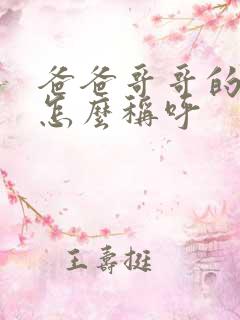 爸爸哥哥的
怎麼稱呼
王壽挺